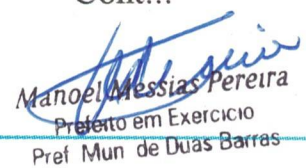 Cont...
Manoel Messias Pereira
Prefeito em Exercicio
Pref Mun de Duas Barras